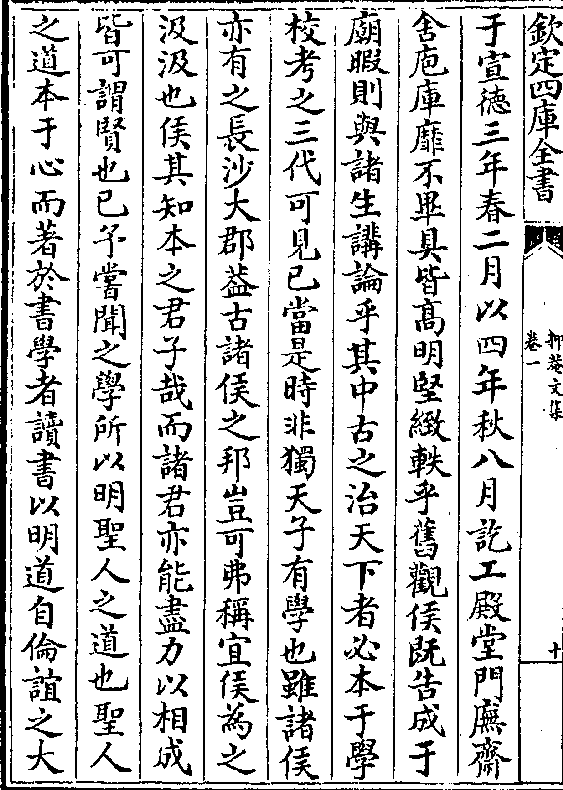 欽定四庫全書
抑菴文集
卷一
十
于宣德三年春二月以四年秋八月訖工殿堂門廡齋
舍庖庫靡不畢具皆髙明堅緻軼乎舊觀侯既告成于
廟暇則與諸生講論乎其中古之治天下者必本于學
校考之三代可見已當是時非獨天子有學也雖諸侯
亦有之長沙大郡葢古諸侯之邦豈可弗稱宜侯為之
汲汲也侯其知本之君子哉而諸君亦能盡力以相成
皆可謂賢也已予嘗聞之學所以明聖人之道也聖人
之道本于心而著於書學者讀書以明道自倫誼之大